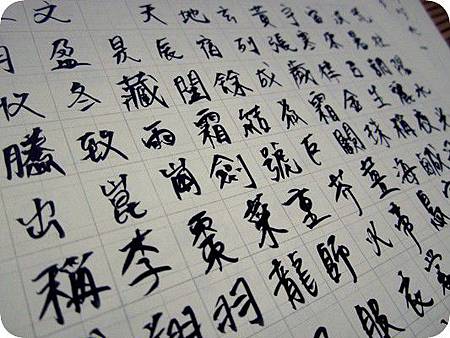 文 天地玄黃宇宙洪荒
月盈昃辰宿列張寒來暑往
收冬藏閏餘成歲律呂調陽
騰致雨露結為霜金生麗水
出崑崗劍號巨闕珠稱夜光
稱李柰菜重芥薑海鹹
翔羽龍師火帝鳥
服衣裳